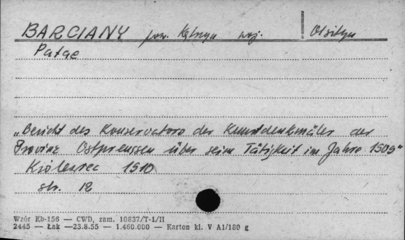 BARCIANY pow. Kętrzyn woj. Olsztyn
Pałac
„Bericht des Konservators der Kunstdenkmäler der
Provinz Ostpreussen über seine Tätigkeit im Jahre 1909"
Królewiec 1910
str. 18
Wzór Kb-156 — CWD, zam. 10837/T-1/II
2445 — Łak —23.8.55 — 1.460.000 — Karton kl. V A1/180 g